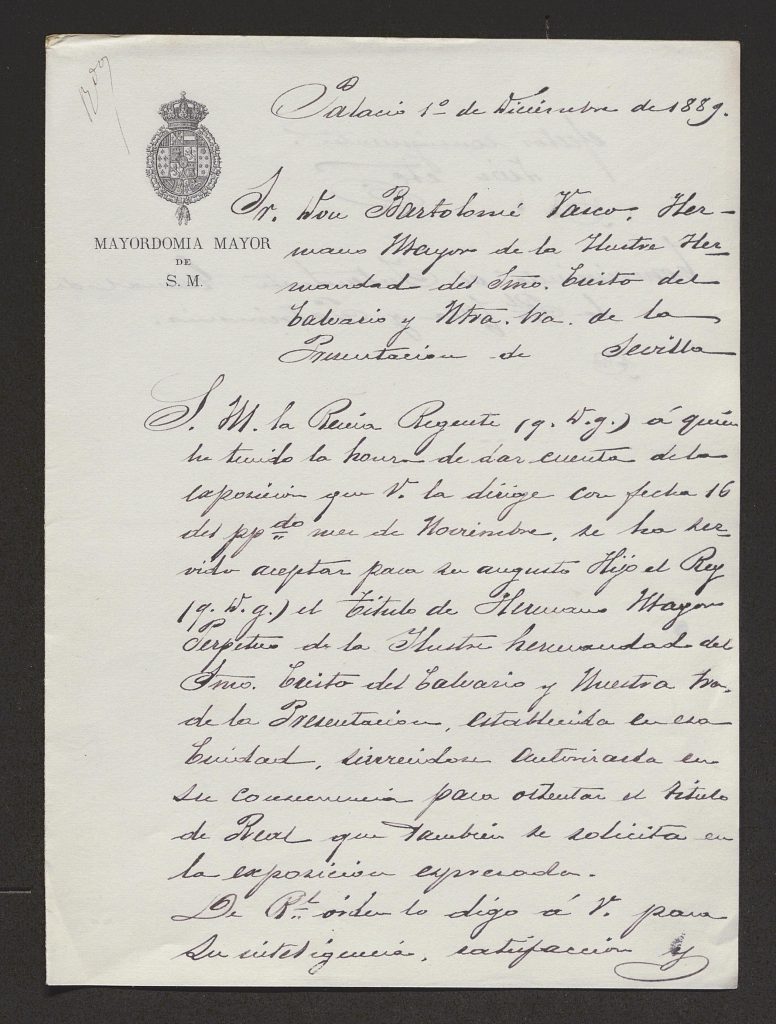 Palacio 1º de Diciembre de 1889.
MAYORDOMIA MAYOR
DE
S. M.
Sr. Don Bartolomé Vasco, Her-
mano Mayor de la Ilustre Her-
mandad del Smo. Cristo del
Calvario y Ntra. Sra. de la
Presentacion de Sevilla
S. M. la Reina Regente (q. D. g.) á quien
he tenido la honra de dar cuenta de la
exposicion que V. la dirige con fecha 16
del ppdo mes de Noviembre, se ha ser-
vido aceptar para su augusto Hijo el Rey
(q. D. g.) el Título de Hermano Mayor
Perpetuo de la Ilustre hermandad del
Smo. Cristo del Calvario y Nuestra Sra.
de la Presentacion, establecida en esa
Ciudad, sirviendose autorizarla en
su consecuencia para ostentar el título
de Real que tambien se solicita en
la exposicion expresada.
De Rl. órden lo digo á V. para
su inteligencia, satisfaccion y